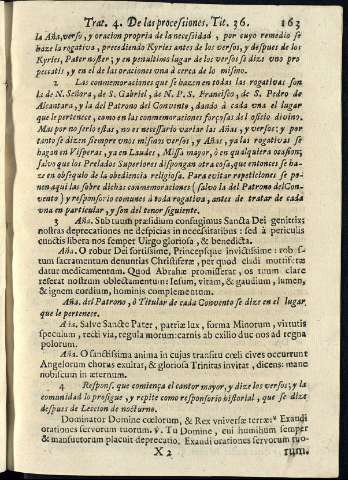 Trat. 4. De las processiones. Tit. 36. 163
la Aña, verso, y oracion propria de la necesidad, por cuyo remedio se
haze la rogativa, precediendo Kyries antes de los versos, y despues de los
Kyries, Pater noster; y en penultimo lugar de los versos se dize vno pro
peccatis, y en el de las oraciones vna à cerca de lo mismo.
2. Las conmemoraciones que se hazen en todas las rogativas son
la de N. Señora, de S. Gabriel, de N. P. S. Francisco, de S. Pedro de
Alcantara, y la del Patrono del Convento, dando à cada vna el lugar
que le pertenece, como en las conmemoraciones forçosas del oficio divino.
Mas por no serlo estas, no es necessario variar las Añas, y versos; y por
tanto se dizen siempre vnos mismos versos, y Añas, ya las rogativas se
hagan en Visperas, ya en Laudes, Missa mayor, ò en qualquiera ocasion;
salvo que los Prelados Superiores dispongan otra cosa, que entonces se ha-
ze en obsequio de la obediencia religiosa. Para evitar repeticiones se po-
nen aqui las sobre dichas conmemoraciones (salvo la del Patrono del Con-
vento) y responsorio comunes à toda rogativa, antes de tratar de cada
vna en particular, y son del tenor siguiente.
3 Aña. Sub tuum præsidium confugimus Sancta Dei genitrix;
nostras deprecationes ne despicias in necessitatibus: sed à periculis
cunctis libera nos semper Virgo gloriosa, & benedicta.
Aña. O robur Dei fortissime, Princepsque invictissime: rob-
tum sacramentum denuntias Christiferæ, per quod eludi mortiferæ
datur medicamentum. Quod Abrahæ promisserat, os tuum clare
reserat nostrum oblectamentum: Iesum, vitam, & gaudium, lumen,
& ignem cordium, hominis complementum.
Aña. del Patrono, ò Titular de cada Convento se dize en el lugar
que le pertenece.
Aña. Salve Sancte Pater, patriæ lux, forma Minorum, virtutis
speculum, recti via, regula morum: carnis ab exilio duc nos ad regna
polorum.
Aña. O sanctissima anima in cujus transitu cœli cives occurrunt
Angelorum chorus exultat, & gloriosa Trinitas invitat, dicens: mane
nobiscum in æternum.
4 Respons. que comiença el cantor mayor, y dize los versos; y la
comunidad lo prosigue, y repite como responsorio historial, que se dize
despues de Leccion de nocturno.
Dominator Domine cœlorum, & Rex vniversæ terræ: * Exaudi
orationes servorum tuorum. ℣. Tu Domine, cui humilium semper
& mansuetorum placuit deprecatio. Exaudi orationes servorum tuo-
X 2 rum.